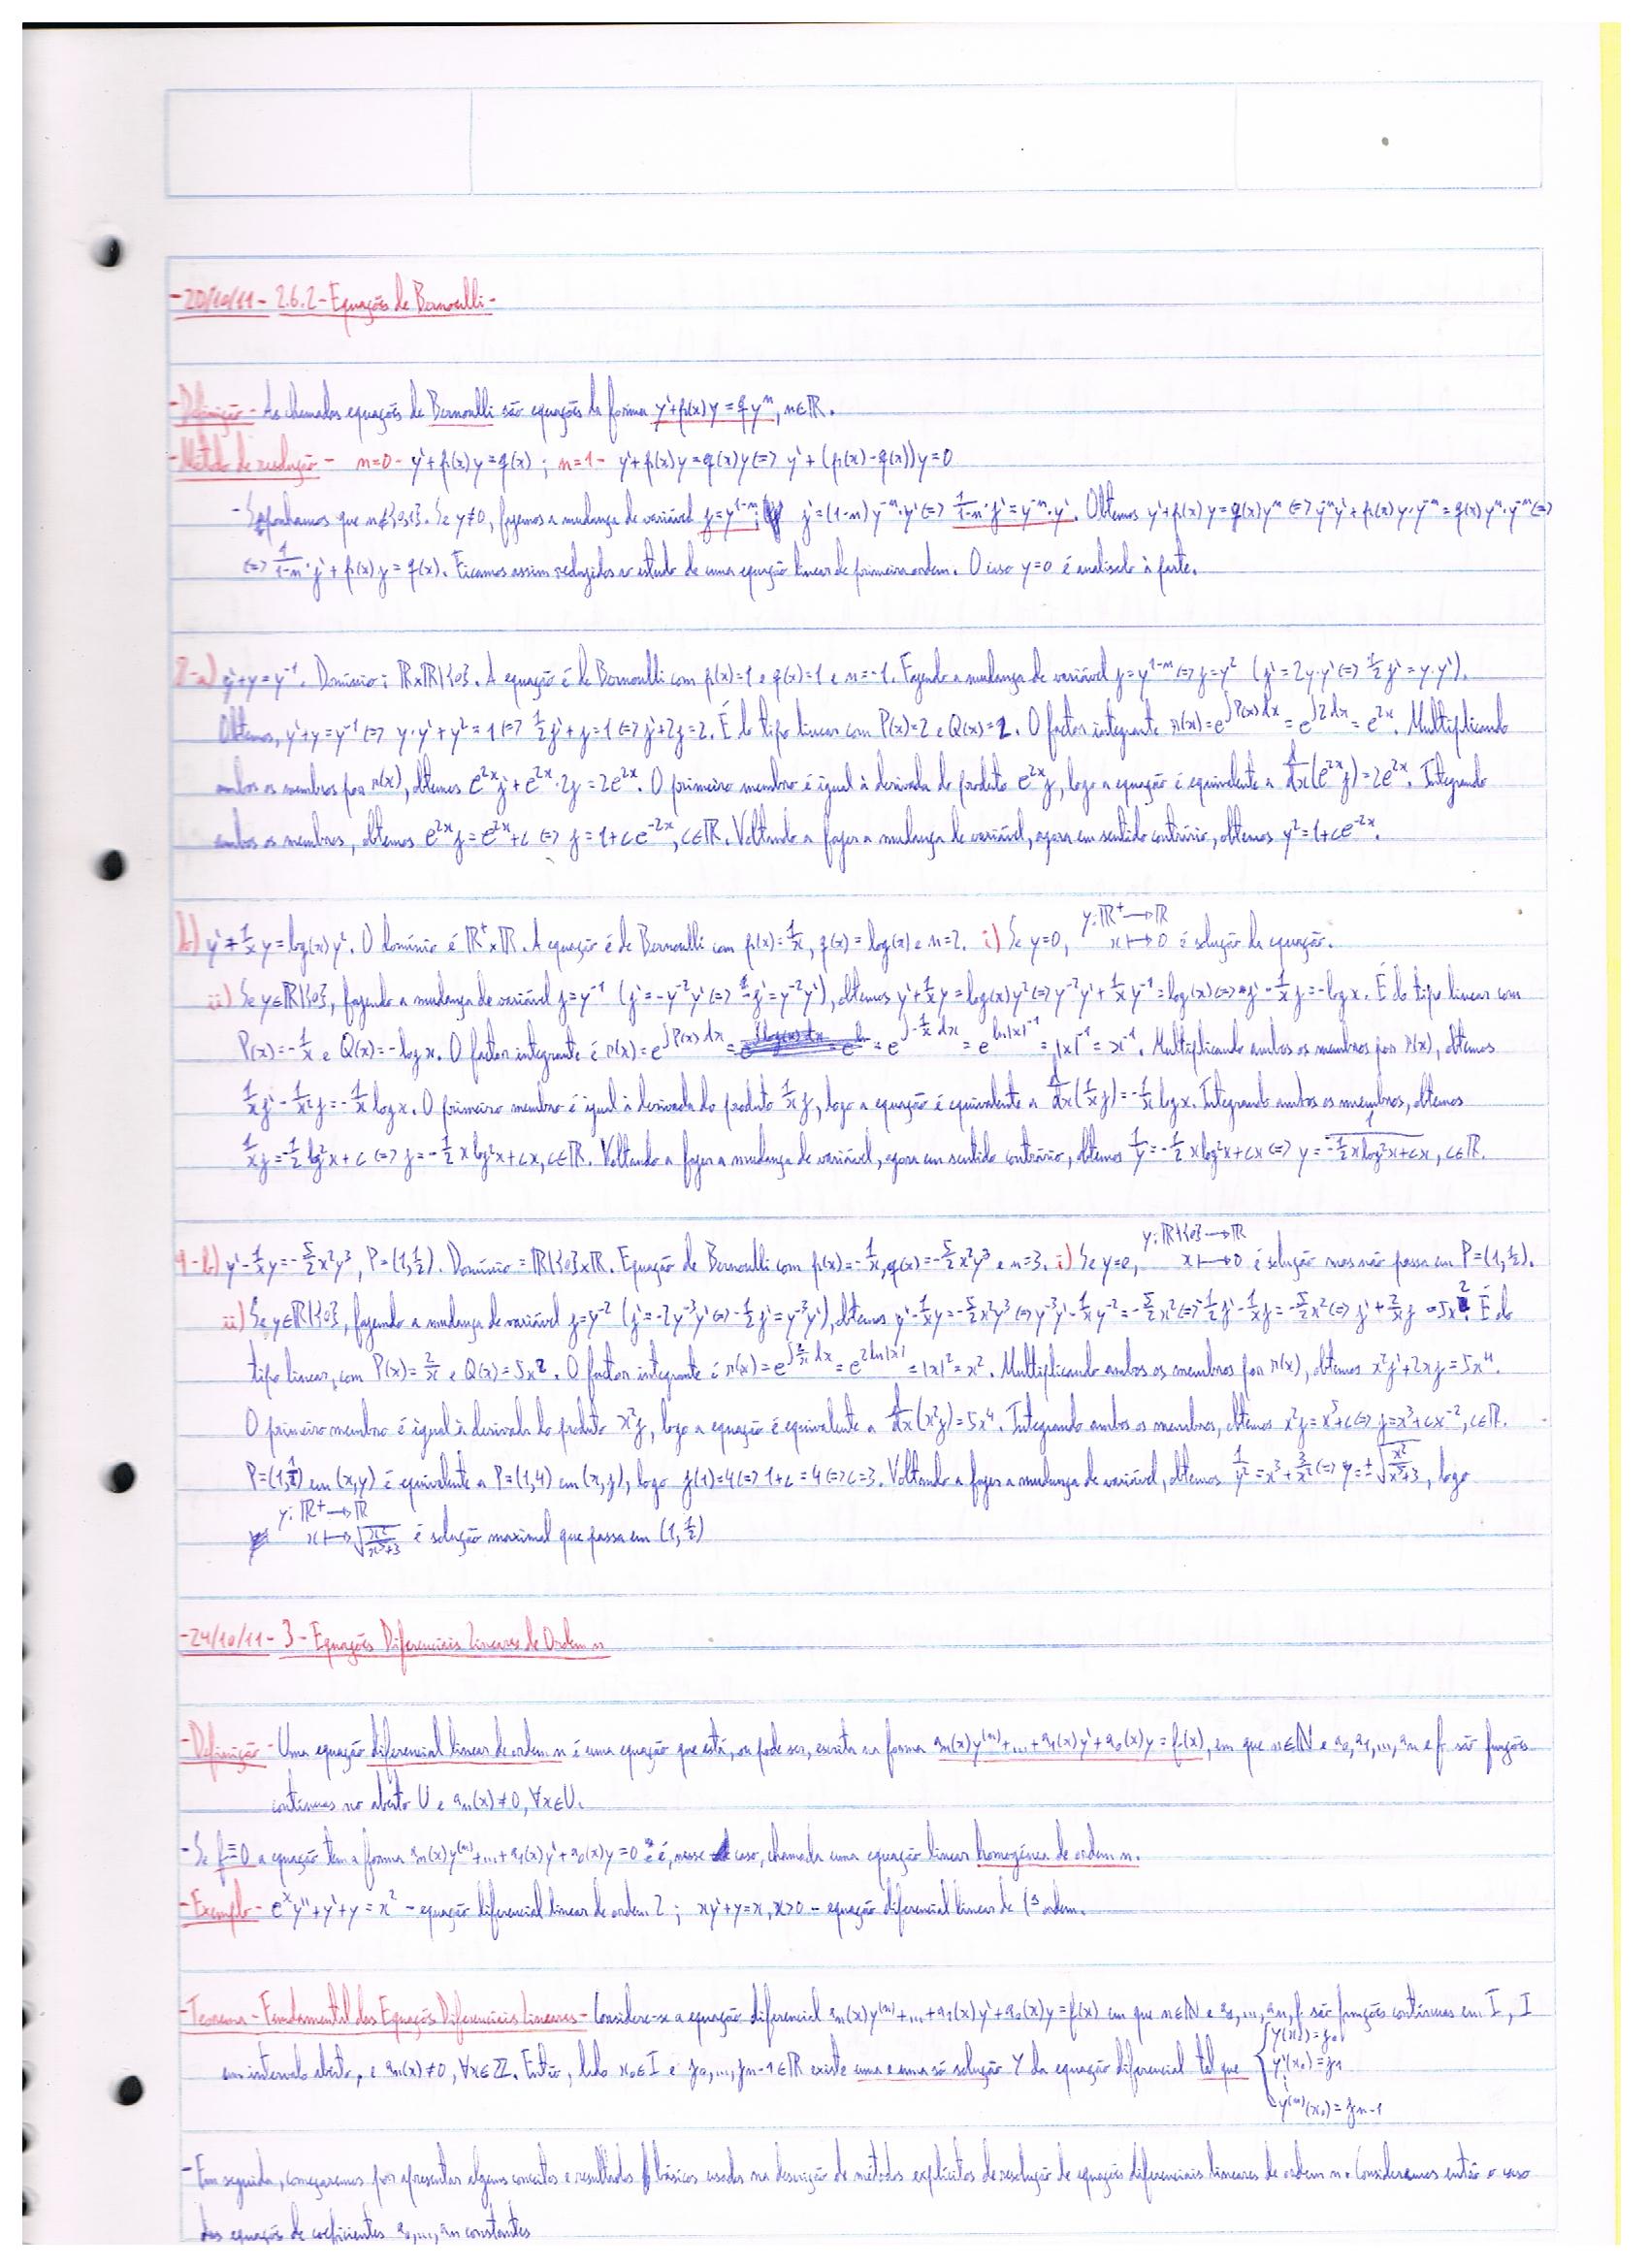 -20/10/11- 2.6.2-Equações de Bernoulli-
-Definição- As chamadas equações de Bernoulli são equações da forma y'+p(x)y=qyⁿ, n∈ℝ.
-Método de resolução- n=0- y'+p(x)y=q(x); n=1- y'+p(x)y=q(x)y⇔ y'+(p(x)-q(x))y=0
-Suponhamos que n∉{0,1}. Se y≠0, fazemos a mudança de variável z=y¹⁻ⁿ; z'=(1-n)y⁻ⁿ·y'⇔ 1/(1-n)·z'=y⁻ⁿ·y'. Obtemos y'+p(x)y=q(x)yⁿ⇔y⁻ⁿy'+p(x)y·y⁻ⁿ=q(x)yⁿ·y⁻ⁿ⇔
⇔ 1/(1-n)·z'+p(x)z=q(x). Ficamos assim reduzidos ao estudo de uma equação linear de primeira ordem. O caso y=0 é analisado à parte.
8-a) y'+y=y⁻¹. Domínio: ℝ×ℝ\{0}. A equação é de Bernoulli com p(x)=1 e q(x)=1 e n=-1. Fazendo a mudança de variável z=y¹⁻ⁿ⇔z=y² (z'=2y·y'⇔ 1/2 z'=y·y').
Obtemos, y'+y=y⁻¹⇔ y·y'+y²=1⇔ 1/2 z'+z=1⇔z'+2z=2. É do tipo linear com P(x)=2 e Q(x)=2. O factor integrante r(x)=e^∫P(x)dx=e^∫2dx=e²ˣ. Multiplicando
ambos os membros por r(x), obtemos e²ˣz'+e²ˣ·2z=2e²ˣ. O primeiro membro é igual à derivada do produto e²ˣz, logo a equação é equivalente a d/dx(e²ˣz)=2e²ˣ. Integrando
ambos os membros, obtemos e²ˣz=e²ˣ+c⇔ z=1+ce⁻²ˣ, c∈ℝ. Voltando a fazer a mudança de variável, agora em sentido contrário, obtemos y²=1+ce⁻²ˣ.
b) y'+1/x y=log(x)y². O domínio é ℝ⁺×ℝ. A equação é de Bernoulli com p(x)=1/x, q(x)=log(x) e n=2. i) Se y=0, y:ℝ⁺→ℝ x↦0 é solução da equação.
ii) Se y∈ℝ\{0}, fazendo a mudança de variável z=y⁻¹ (z'=-y⁻²y'⇔ -z'=y⁻²y'), obtemos y'+1/x y=log(x)y²⇔y⁻²y'+1/x y⁻¹=log(x)⇔z'-1/x z=-log x. É do tipo linear com
P(x)=-1/x e Q(x)=-log x. O factor integrante é r(x)=e^∫P(x)dx=e^∫-1/x dx=e^ln|x|⁻¹=|x|⁻¹=x⁻¹. Multiplicando ambos os membros por r(x), obtemos
1/x z'-1/x² z=-1/x log x. O primeiro membro é igual à derivada do produto 1/x z, logo a equação é equivalente a d/dx(1/x z)=-1/x log x. Integrando ambos os membros, obtemos
1/x z=-1/2 log²x+c⇔ z=-1/2 x log²x+cx, c∈ℝ. Voltando a fazer a mudança de variável, agora em sentido contrário, obtemos 1/y=-1/2 x log²x+cx⇔ y=1/(-1/2 x log²x+cx), c∈ℝ.
9-b) y'-1/x y=-5/2 x²y³, P=(1,1/2). Domínio=ℝ\{0}×ℝ. Equação de Bernoulli com p(x)=-1/x, q(x)=-5/2 x²y³ e n=3. i) Se y=0, y:ℝ\{0}→ℝ x↦0 é solução mas não passa em P=(1,1/2).
ii) Se y∈ℝ\{0}, fazendo a mudança de variável z=y⁻² (z'=-2y⁻³y'⇔-1/2 z'=y⁻³y'), obtemos y'-1/x y=-5/2 x²y³⇔y⁻³y'-1/x y⁻²=-5/2 x²⇔-1/2 z'-1/x z=-5/2 x²⇔ z'+2/x z=5x². É do
tipo linear, com P(x)=2/x e Q(x)=5x². O factor integrante é r(x)=e^∫2/x dx=e^2ln|x|=|x|²=x². Multiplicando ambos os membros por r(x), obtemos x²z'+2xz=5x⁴.
O primeiro membro é igual à derivada do produto x²z, logo a equação é equivalente a d/dx(x²z)=5x⁴. Integrando ambos os membros, obtemos x²z=x⁵+c⇔z=x³+cx⁻², c∈ℝ.
P=(1,1/2) em (x,y) é equivalente a P=(1,4) em (x,z), logo z(1)=4⇔1+c=4⇔c=3. Voltando a fazer a mudança de variável, obtemos 1/y²=x³+3/x²⇔ y=±√(x²/(x⁵+3)), logo
y:ℝ⁺→ℝ x↦√(x²/(x⁵+3)) é solução maximal que passa em (1,1/2)
-24/10/11- 3-Equações Diferenciais Lineares de Ordem n
-Definição- Uma equação diferencial linear de ordem n é uma equação que está, ou pode ser, escrita na forma aₙ(x)y⁽ⁿ⁾+...+a₁(x)y'+a₀(x)y=f(x), em que n∈ℕ e a₀,a₁,...,aₙ e f são funções
contínuas no aberto U e aₙ(x)≠0, ∀x∈U.
-Se f≡0 a equação tem a forma aₙ(x)y⁽ⁿ⁾+...+a₁(x)y'+a₀(x)y=0 e é, nesse caso, chamada uma equação linear homogénea de ordem n.
-Exemplo- eˣy''+y'+y=x² - equação diferencial linear de ordem 2; xy'+y=x, x>0 - equação diferencial linear de 1ª ordem.
-Teorema-Fundamental das Equações Diferenciais Lineares- Considere-se a equação diferencial aₙ(x)y⁽ⁿ⁾+...+a₁(x)y'+a₀(x)y=f(x) em que n∈ℕ e a₀,...,aₙ,f são funções contínuas em I, I
um intervalo aberto, e aₙ(x)≠0, ∀x∈ℤ. Então, dado x₀∈I e z₀,...,zₙ₋₁∈ℝ existe uma e uma só solução Y da equação diferencial tal que {y(x₀)=z₀
y'(x₀)=z₁
⋮
y⁽ⁿ⁾(x₀)=zₙ₋₁
-Em seguida, começaremos por apresentar alguns conceitos e resultados básicos usados na descrição de métodos explícitos de resolução de equações diferenciais lineares de ordem n. Consideremos então o caso
das equações de coeficientes a₀,...,aₙ constantes